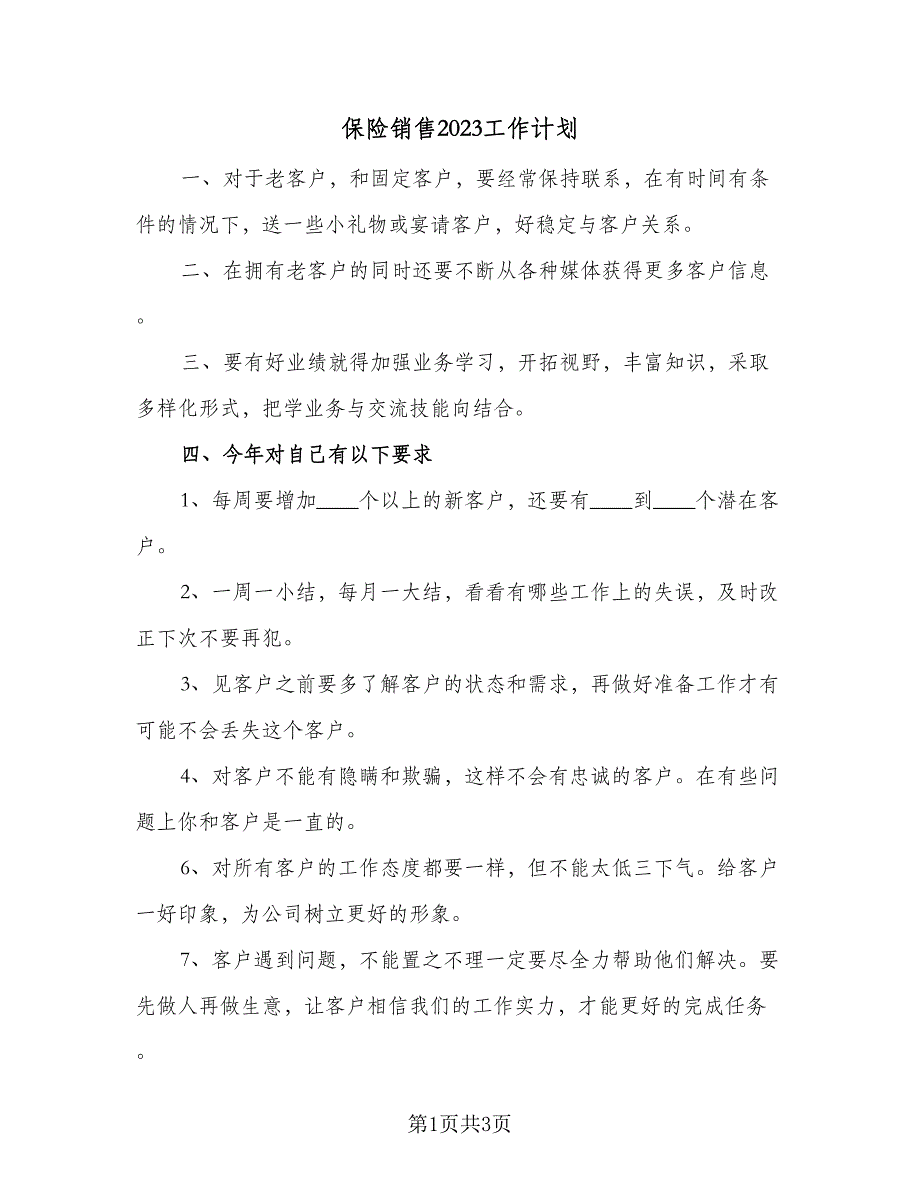 保险销售2023工作计划
一、对于老客户，和固定客户，要经常保持联系，在有时间有条
件的情况下，送一些小礼物或宴请客户，好稳定与客户关系。
二、在拥有老客户的同时还要不断从各种媒体获得更多客户信息
。
三、要有好业绩就得加强业务学习，开拓视野，丰富知识，采取
多样化形式，把学业务与交流技能向结合。
四、今年对自己有以下要求
1、每周要增加____个以上的新客户，还要有____到____个潜在客
户。
2、一周一小结，每月一大结，看看有哪些工作上的失误，及时改
正下次不要再犯。
3、见客户之前要多了解客户的状态和需求，再做好准备工作才有
可能不会丢失这个客户。
4、对客户不能有隐瞒和欺骗，这样不会有忠诚的客户。在有些问
题上你和客户是一直的。
6、对所有客户的工作态度都要一样，但不能太低三下气。给客户
一好印象，为公司树立更好的形象。
7、客户遇到问题，不能置之不理一定要尽全力帮助他们解决。要
先做人再做生意，让客户相信我们的工作实力，才能更好的完成任务
。
第1页共3页